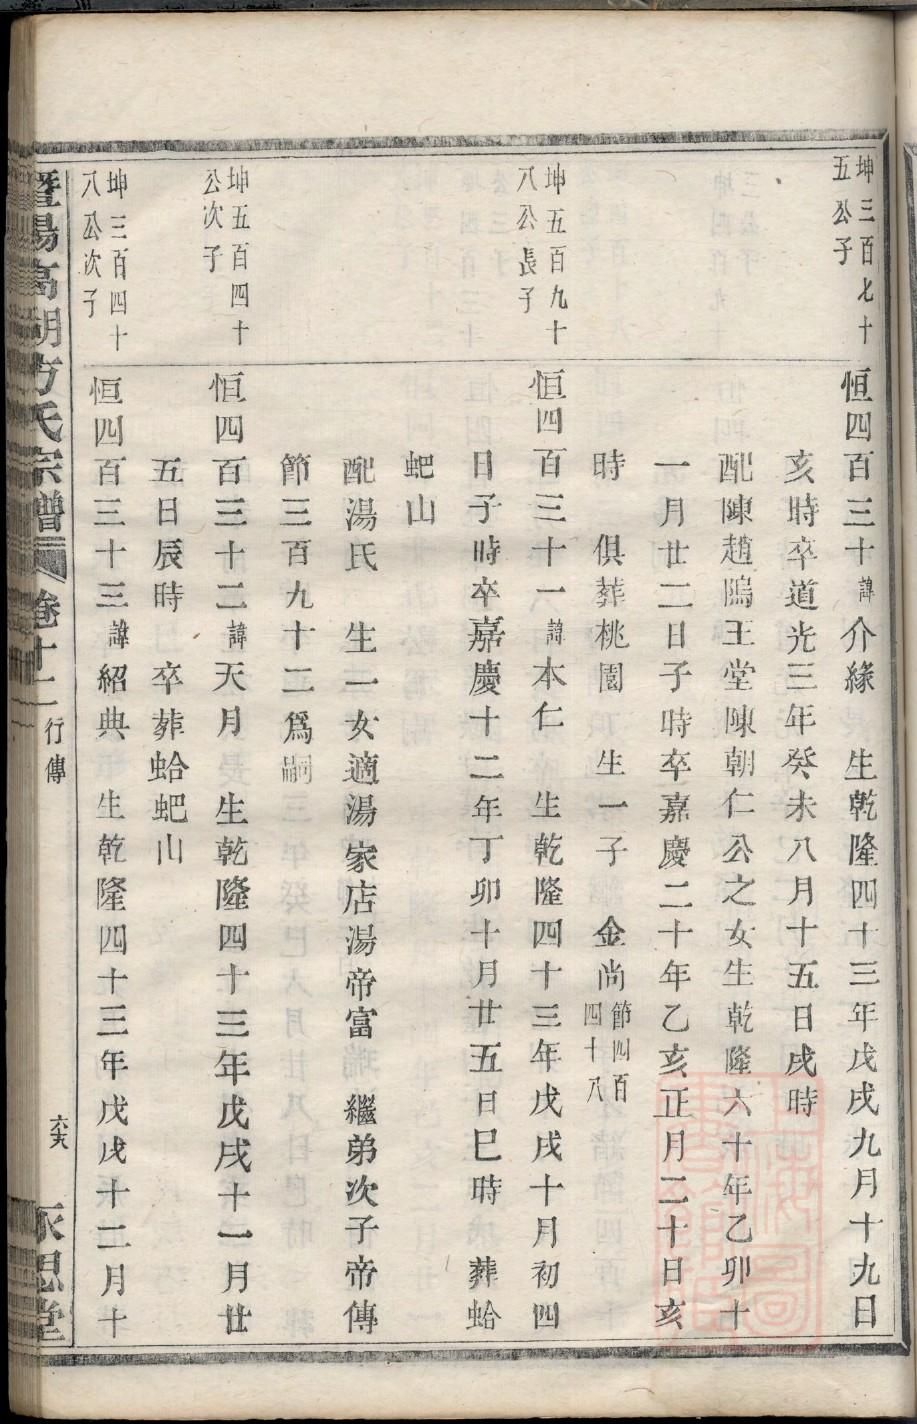 坤三百七十
五公子
恒四百三十諱介緣 生乾隆四十三年戊戌九月十九日
亥時卒道光三年癸未八月十五日戌時
配陳趙隖王堂陳朝仁公之女生乾隆六十年乙卯十
一月廿二日子時卒嘉慶二十年乙亥正月二十日亥
時 俱葬桃園 生一子 金尚節四百四十八
坤五百九十
八公長子
恒四百三十一諱本仁 生乾隆四十三年戊戌十月初四
日子時卒嘉慶十二年丁卯十月廿五日巳時 葬蛤
蚆山
配湯氏 生一女適湯家店湯帝富 繼弟次子帝傳
節三百九十二爲嗣
坤五百四十
公次子
恒四百三十二諱天月 生乾隆四十三年戊戌十一月廿
五日辰時 卒葬蛤蚆山
坤三百四十
八公次子
恒四百三十三諱紹典 生乾隆四十三年戊戌十二月十
暨陽高湖方氏宗譜 卷十一 行傳 六六 永思堂